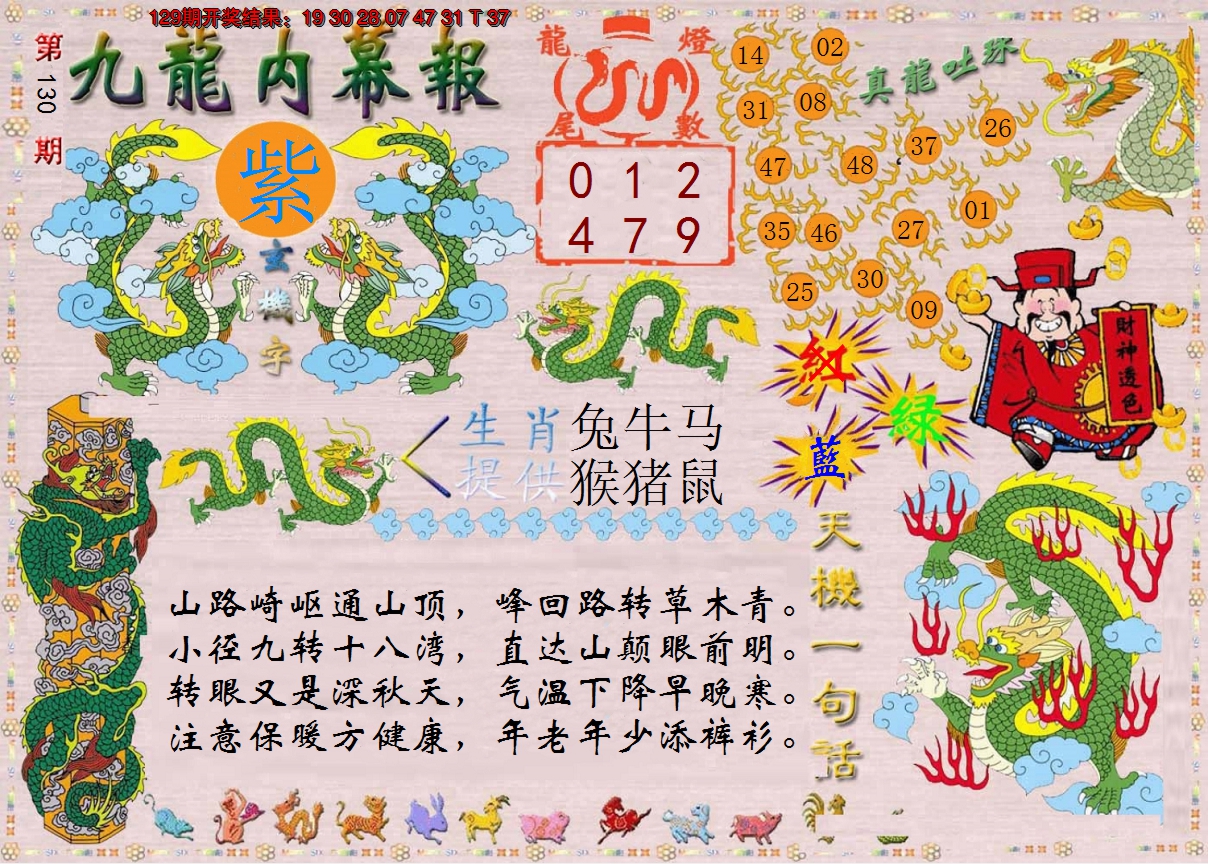 129期开奖结果：19 30 28 07 47 31 T 37
第130期
九龍内幕報
紫
玄機字
龍燈尾數
0 1 2
4 7 9
真龍吐珠
14 02
31 08
47 48 37 26
35 46 27 01
25 30 09
財神透色
紅
綠
藍
生肖提供
兔牛马
猴猪鼠
天機一句話
山路崎岖通山顶，峰回路转草木青。
小径九转十八湾，直达山颠眼前明。
转眼又是深秋天，气温下降早晚寒。
注意保暖方健康，年老年少添裤衫。